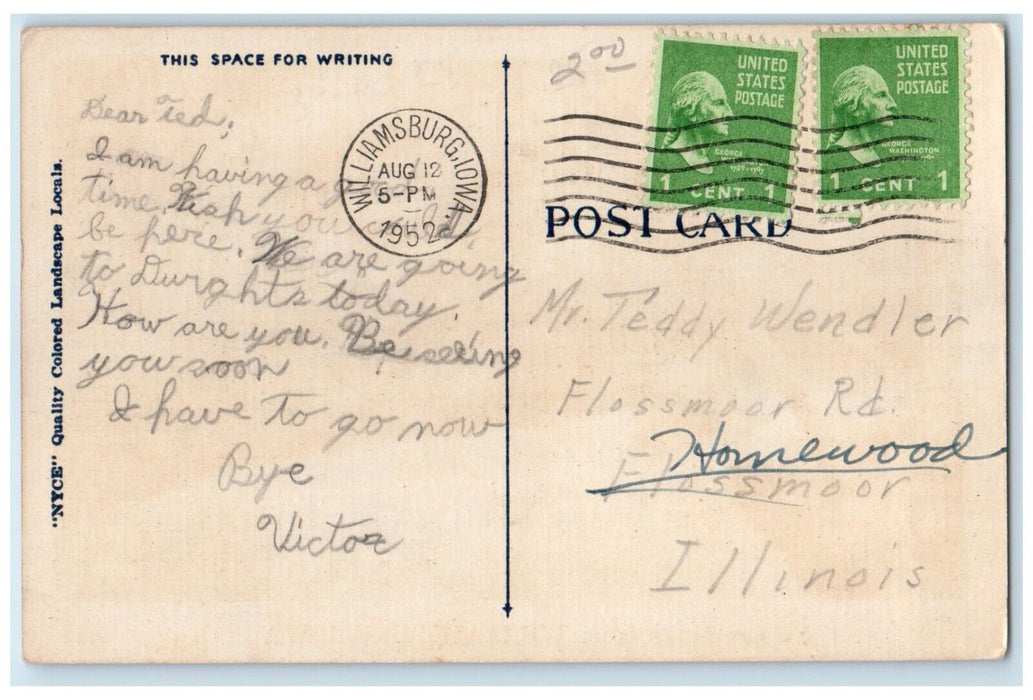 THIS SPACE FOR WRITING
"NYCE" Quality Colored Landscape Locals.
Dear Ted,
I am having a
time. Wish you
be here. We are going
to Dwights today.
How are you. Be seeing
you soon
I have to go now
Bye
Victor
WILLIAMSBURG, IOWA.
AUG 12
5-PM
1952
2.00
UNITED
STATES
POSTAGE
GEORGE
1 CENT 1
UNITED
STATES
POSTAGE
GEORGE
WASHINGTON
1 CENT 1
POST CARD
Mr. Teddy Wendler
Flossmoor Rd.
Homewood
Flossmoor
Illinois